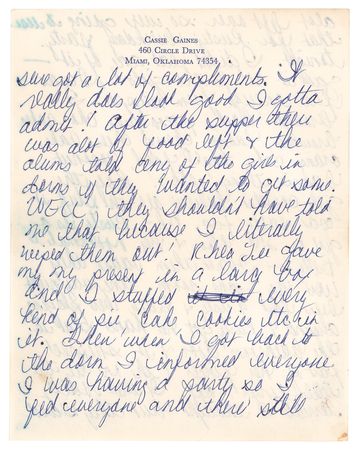 CASSIE GAINES
460 CIRCLE DRIVE
MIAMI, OKLAHOMA 74354
sure got a lot of compliments. It
really does look good I gotta
admit! After the supper there
was alot of food left & the
alums told any of the girls in
dorms if they wanted to get some.
WELL they shouldn't have told
me that because I literally
wiped them out! Rhea Lee gave
my my present in a large box
and I stuffed every
kind of pie cake cookies etc in
it. Then when I got back to
the dorm I informed everyone
I was having a party so I
feed everyone and there still